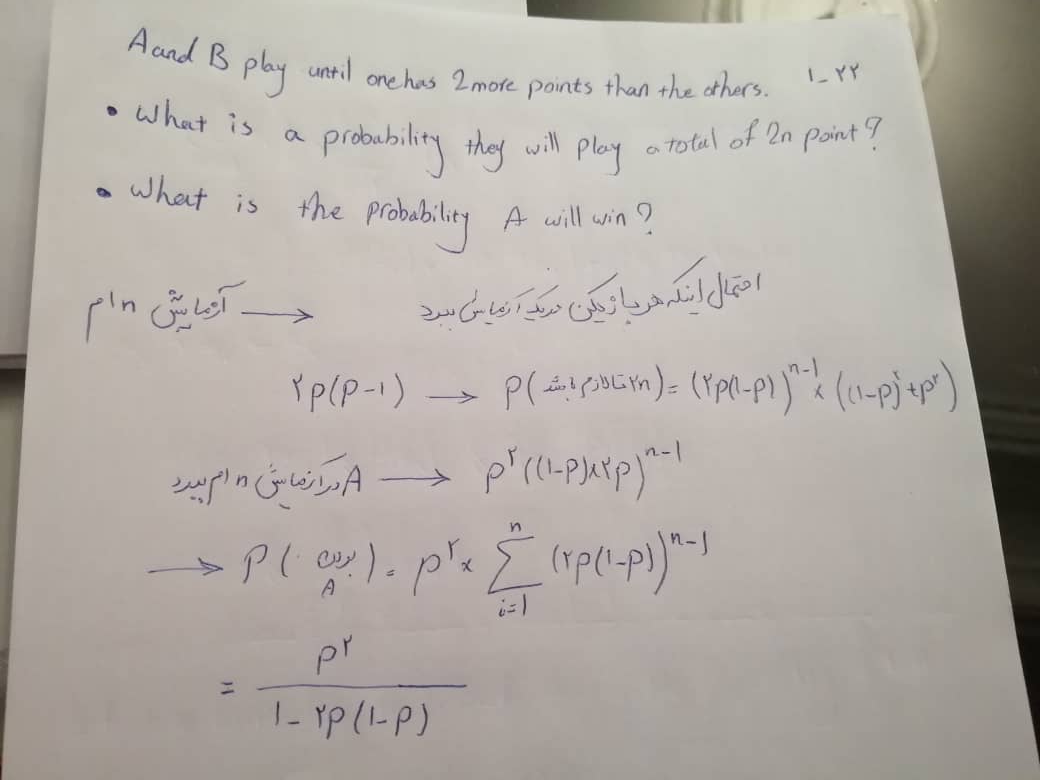 A and B play until one has 2 more points than the others. ۱-۲۲
• What is a probability they will play a total of 2n point?
• What is the probability A will win?
آزمایش nام → احتمال اینکه هر بازیکن در یک آزمایش ببرد
۲p(p-۱) → p(۲n تا لازم باشد) = (۲p(۱-p))^n-۱ × ((۱-p)^۲+p^۲)
A در آزمایش n ام ببرد → p^۲((۱-p)×۲p)^n-۱
→ P(بردن A) = p^۲ × Σ_{i=1}^{n} (۲p(۱-p))^n-۱
= p^۲ / ۱-۲p(۱-p)